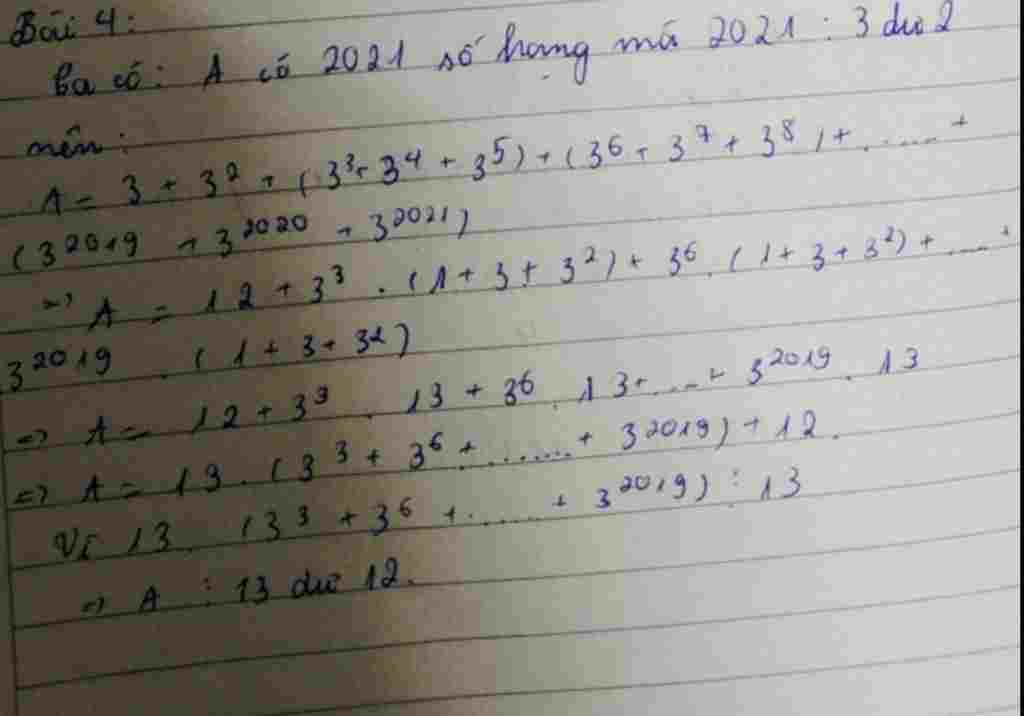 Bài 4:
Ta có: A có 2021 số hạng mà 2021 : 3 dư 2
nên:
A = 3 + 3² + (3³ + 3⁴ + 3⁵) + (3⁶ + 3⁷ + 3⁸) + ..... +
(3²⁰¹⁹ + 3²⁰²⁰ + 3²⁰²¹)
=> A = 12 + 3³ . (1 + 3 + 3²) + 3⁶ . (1 + 3 + 3²) + ..... +
3²⁰¹⁹ . (1 + 3 + 3²)
=> A = 12 + 3³ . 13 + 3⁶ . 13 + ... + 3²⁰¹⁹ . 13
=> A = 13 . (3³ + 3⁶ + ...... + 3²⁰¹⁹) + 12.
Vì 13 . (3³ + 3⁶ + ..... + 3²⁰¹⁹) ⋮ 13
=> A : 13 dư 12.